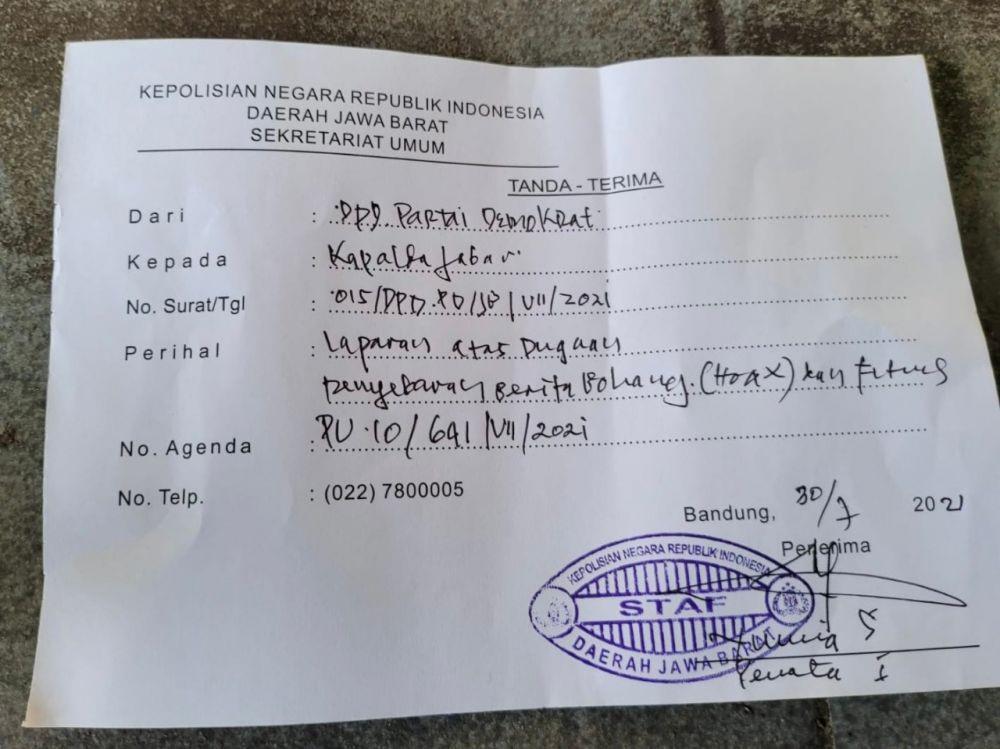 KEPOLISIAN NEGARA REPUBLIK INDONESIA
DAERAH JAWA BARAT
SEKRETARIAT UMUM
TANDA - TERIMA
Dari : DPD Partai Demokrat
Kepada : Kapolda Jabar
No. Surat/Tgl : 015/DPD.PD/JB/VII/2021
Perihal : Laporan atas Dugaan
penyebaran Berita Bohong (HOAX) dan Fitnah
No. Agenda : RU.10/641/VII/2021
No. Telp. : (022) 7800005
Bandung, 30/7 2021
Penerima
KEPOLISIAN NEGARA REPUBLIK INDONESIA
STAF
DAERAH JAWA BARAT
Penata I